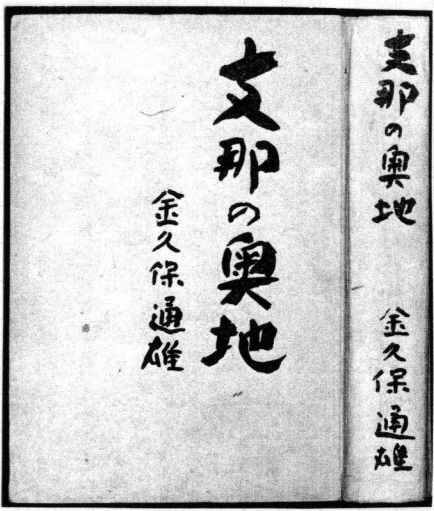 支那の奥地
金久保通雄
支那の奥地
金久保通雄